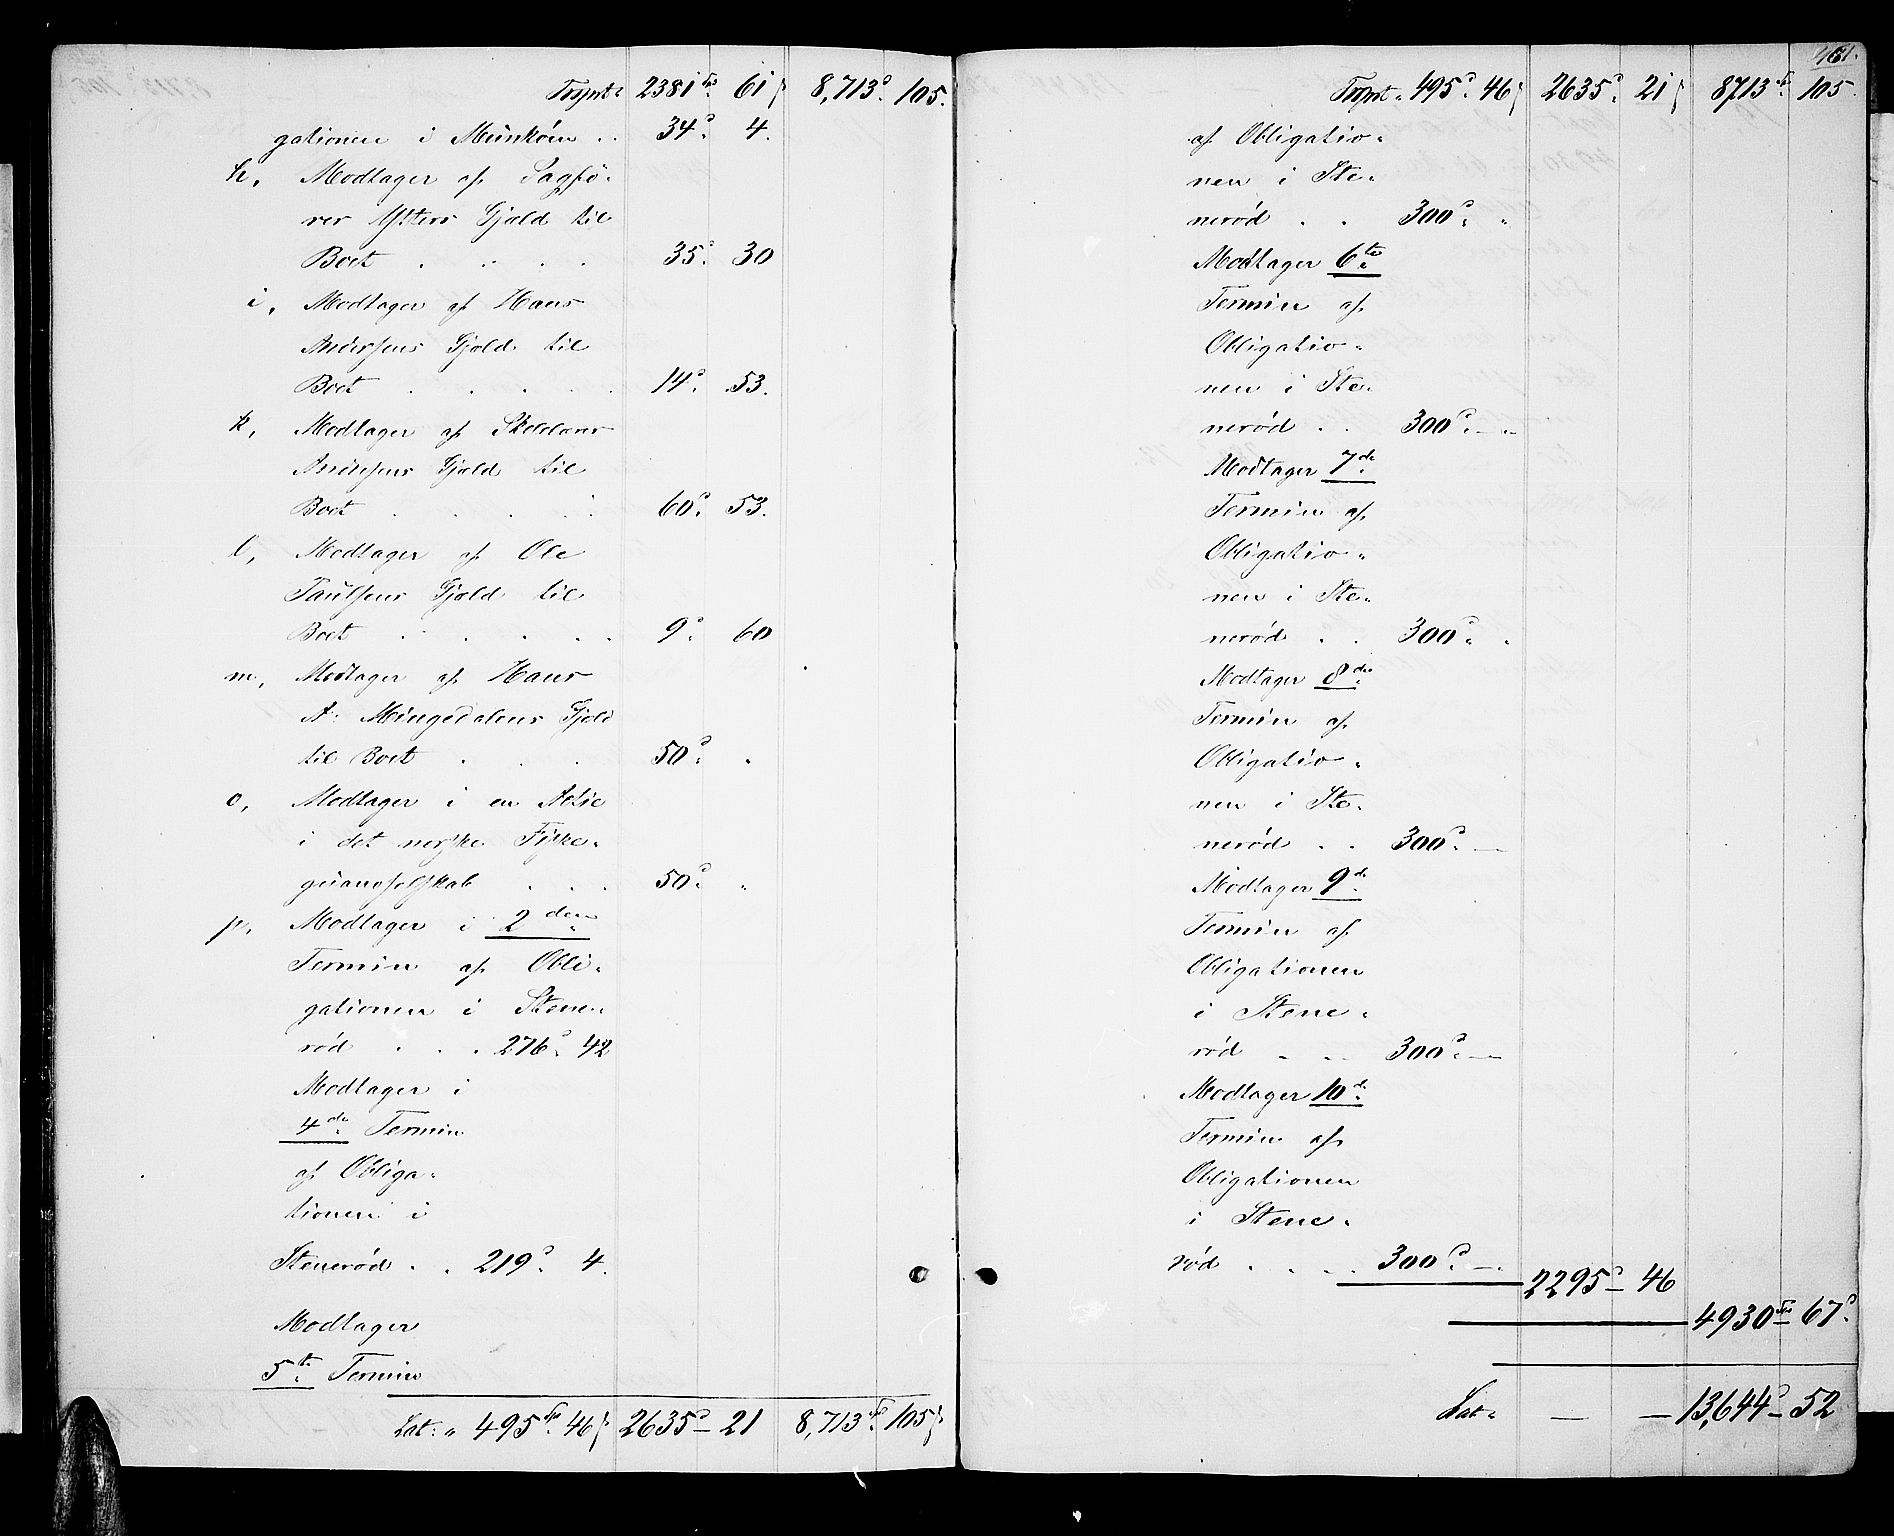 Trsprt: 2381 Sp. 61 ß 8,713 d. 105.
gationen i Munköen .. 34 d. 4.
h, Modtager af Sagfø-
rer Ysters Gjæld til
Boet . . . . 35 d. 30
i, Modtager af Hans
Andersens Gjæld til
Boet . . . . . 14 d. 53.
k, Modtager af
Andersens Gjæld til
Boet . . . . . 60 d. 53.
l, Modtager af Ole
Paulsens Gjæld til
Boet . . . . . 9 d. 60
m, Modtager af Hans
A. Mingedalens Gjæld
til Boet . . . 50 d. "
o, Modtager i en Actie
i det norske Fiske-
guanoselskab . . . 50 d. "
p, Modtager i 2den
Termin af Obli-
gationen i Stene-
rød . . . 276 d. 42
Modtager i
4de Termin
af Obliga-
tionen i
Stenerød . . 219 d. 4.
Modtager
5te Termin
Lat: " 495 Sp. 46 ß 2635 d. – 21 8,713 Sp. 105 ß
461.
Trsprt " 495 d. 46 ß 2635 d. 21 ß 8713 Sp. 105.
af Obligatio-
nen i Ste-
nerød . . 300 d. "
Modtager 6te
Termin af
Obligatio-
nen i Ste-
nerød . . 300 d. – "
Modtager 7de
Termin af
Obligatio-
nen i Ste-
nerød . . 300 d. "
Modtager 8de
Termin af
Obligatio-
nen i Ste-
nerød . . 300 d. –
Modtager 9de
Termin af
Obligationen
i Stene-
rød . .. 300 d. –
Modtager 10de
Termin af
Obligationen
i Stene-
rød . . . . 300 d. – .
2295 d. – 46
4930 Sp. 67 ß.
Lat: – – 13,644 d. – 52